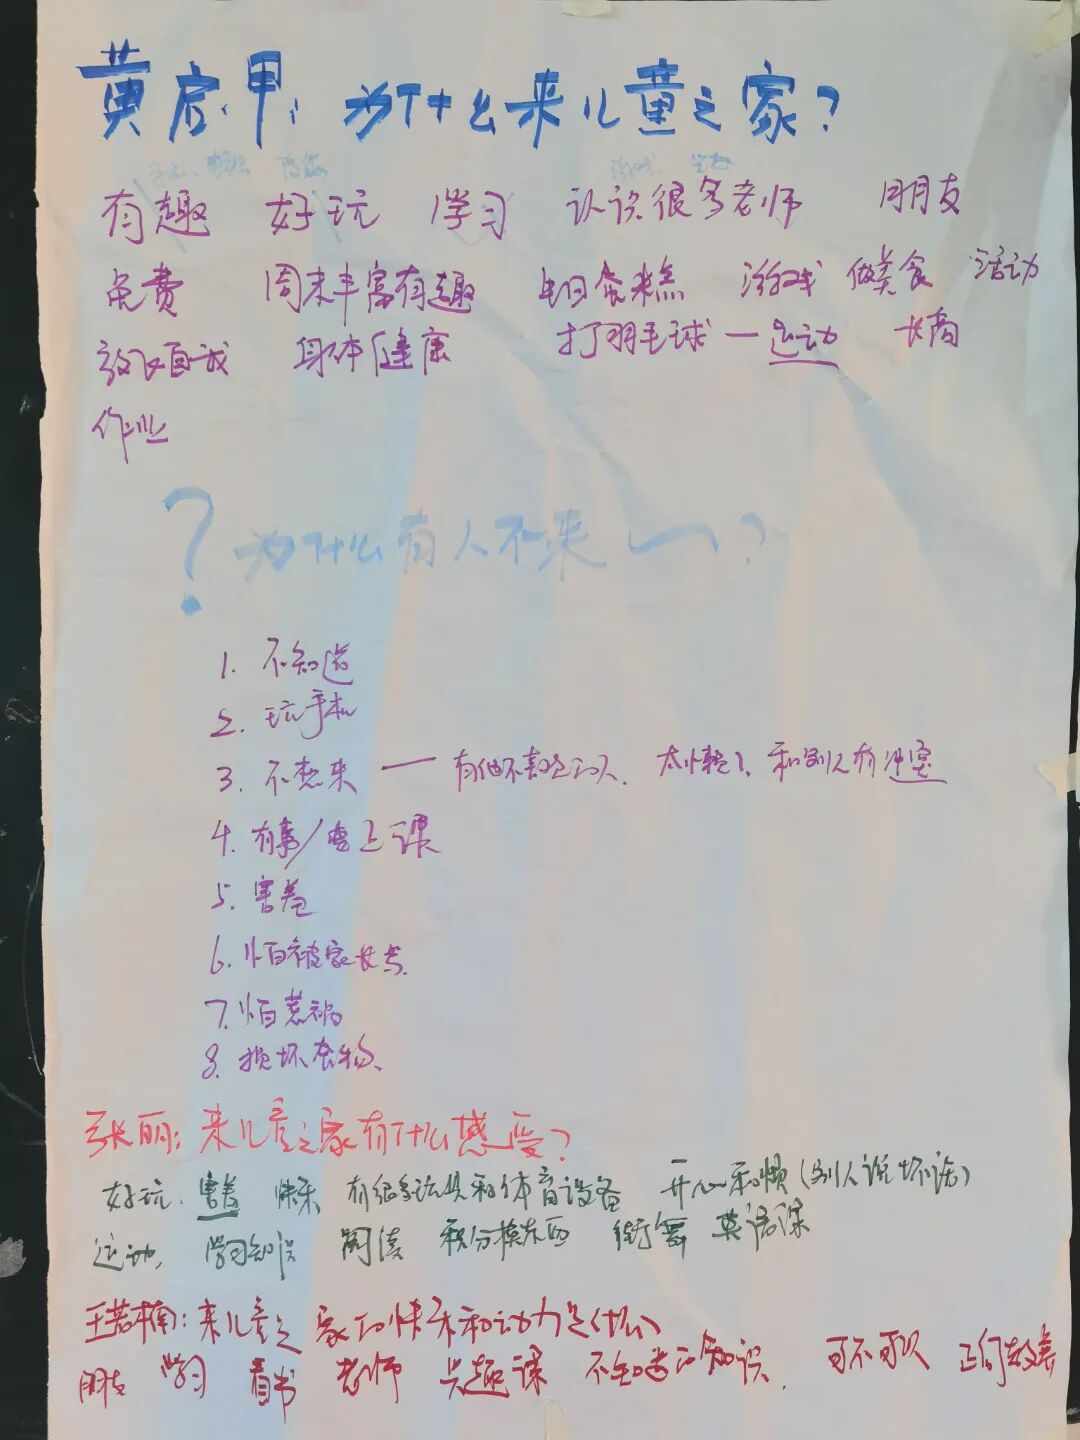 黄启甲: 为什么来儿童之家?
有趣 好玩 学习 认识很多老师 朋友
免费 周末丰富有趣 生日蛋糕 游戏 做美食 活动
放松自我 身体健康 打羽毛球—运动 长高
作业
? 为什么有人不来 ?
1. 不知道
2. 玩手机
3. 不想来 — 有他不喜欢的人. 太小 了、和别人有冲突
4. 有事/要上课
5. 害羞
6. 怕被家长
7. 怕惹祸
8. 损坏 物.
张丽: 来儿童之家有什么感受?
好玩. 害羞 快乐 有很多玩具和体育设备 开心和 (别人说坏话)
运动, 学习知识 阅读 积分换东西 街舞 英语课
王若楠: 来儿童之家的快乐和动力是什么
朋友 学习 看书 老师 兴趣课 不知道的知识. 可不可以